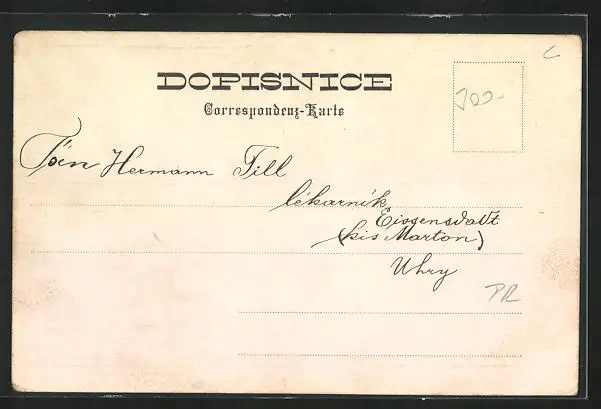 DOPISNICE
Correspondenz-Karte
300.-
Hermann Till
lékarník
Eissenstadt
(kis Marton)
Uhry
PR